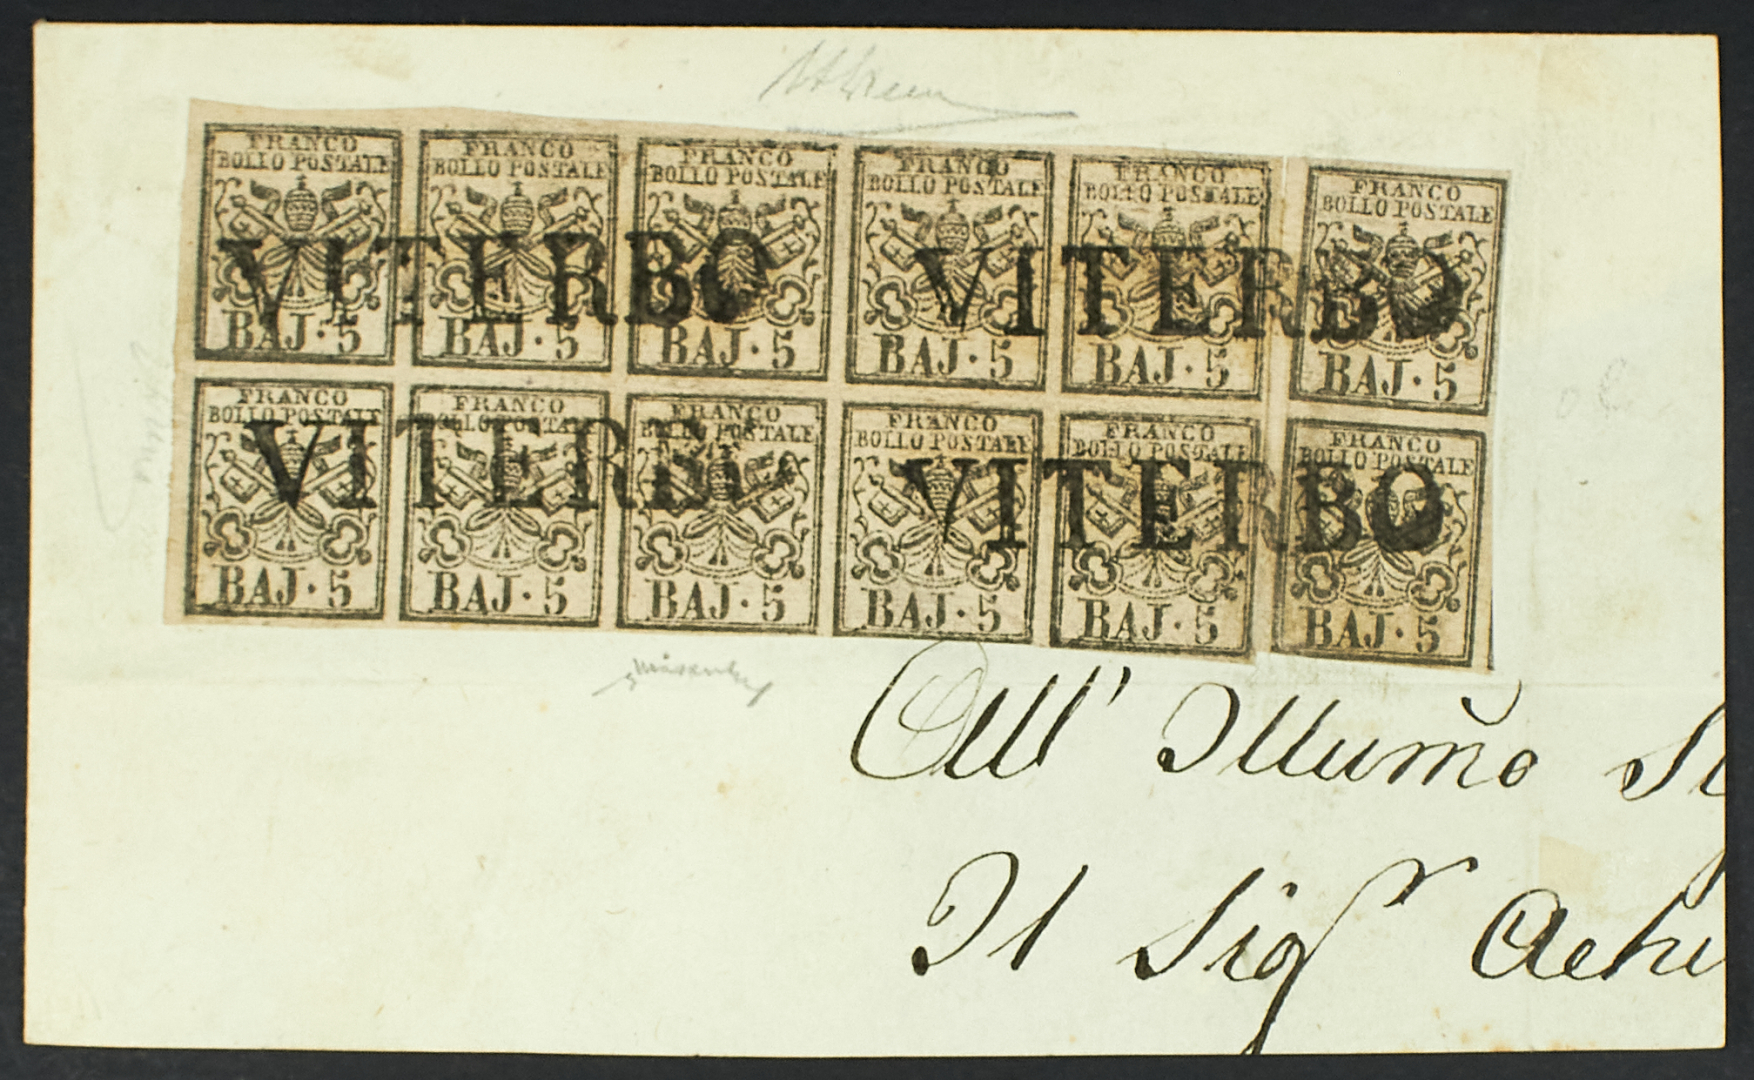 FRANCO FRANCO FRANCO FRANCO FRANCO FRANCO
BOLLO POSTALE BOLLO POSTALE BOLLO POSTALE BOLLO POSTALE BOLLO POSTALE BOLLO POSTALE
VITERBO VITERBO
BAJ·5 BAJ·5 BAJ·5 BAJ·5 BAJ·5 BAJ·5
FRANCO FRANCO FRANCO FRANCO FRANCO FRANCO
BOLLO POSTALE BOLLO POSTALE BOLLO POSTALE BOLLO POSTALE BOLLO POSTALE BOLLO POSTALE
VITERBO VITERBO
BAJ·5 BAJ·5 BAJ·5 BAJ·5 BAJ·5 BAJ·5
All' Illumo
Il Sigr